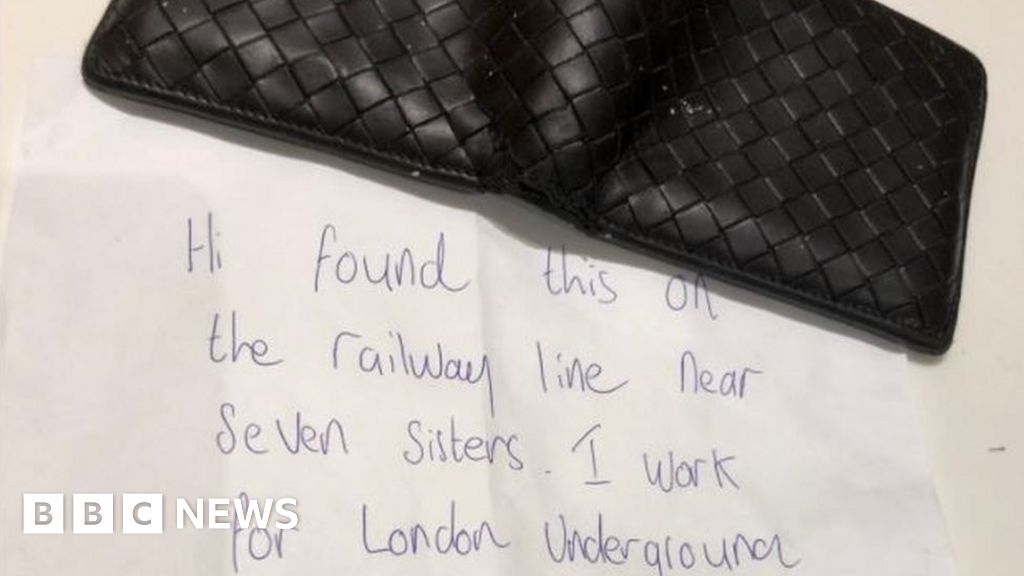 Hi found this on
the railway line near
Seven Sisters. I work
for London Underground
BBC NEWS